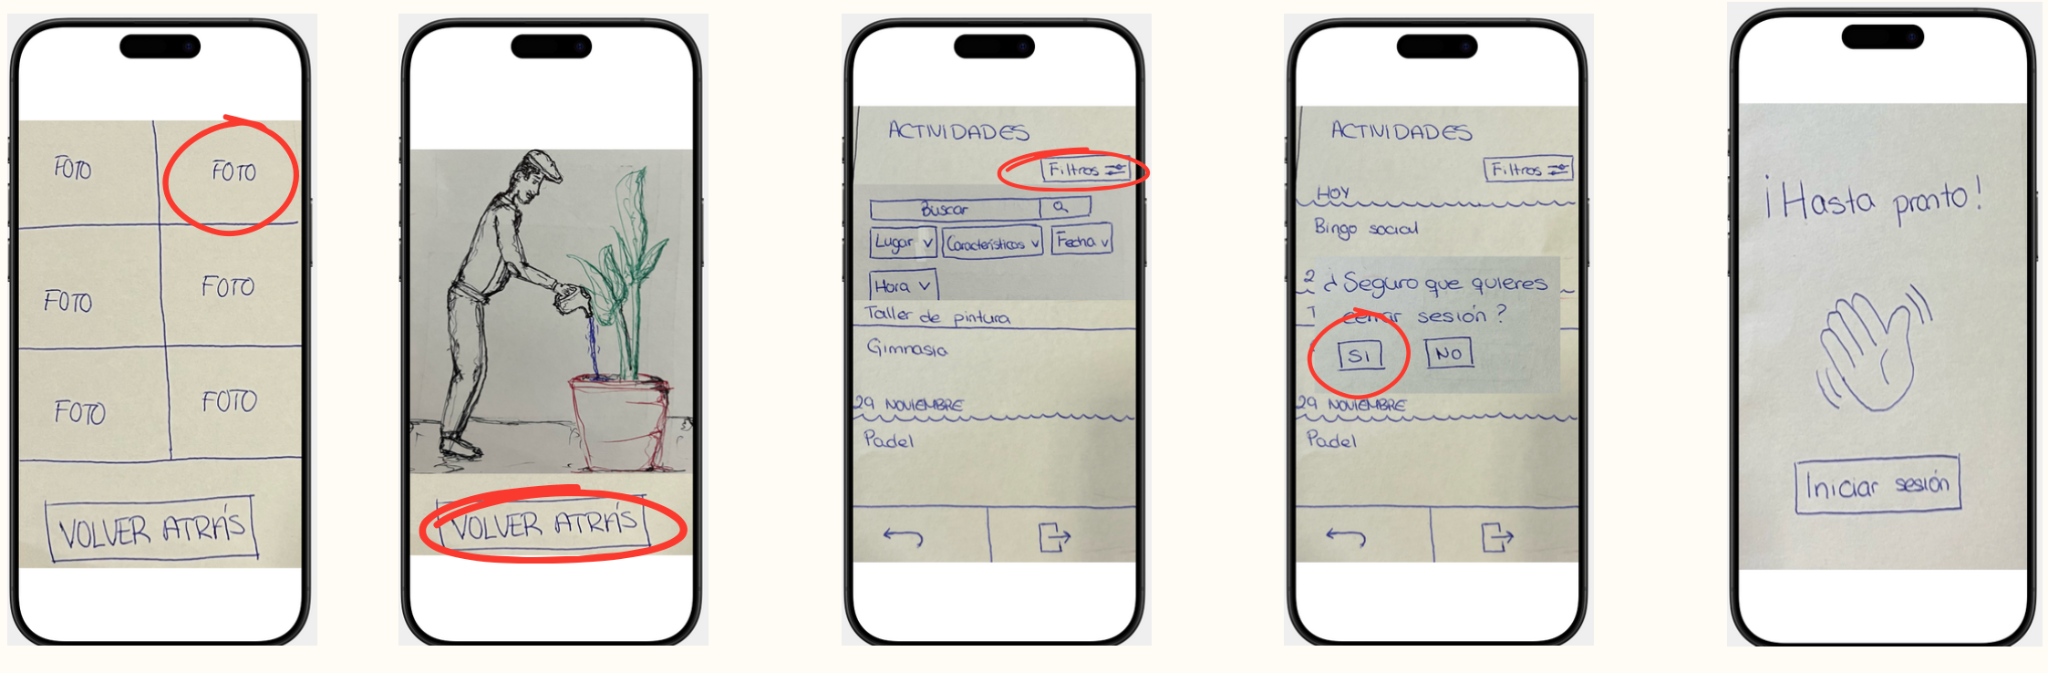 FOTO
FOTO
FOTO
FOTO
FOTO
FOTO
VOLVER ATRÁS
VOLVER ATRÁS
ACTIVIDADES
Filtros
Buscar
Lugar
Características
Fecha
Hora
Taller de pintura
Gimnasia
29 NOVIEMBRE
Padel
ACTIVIDADES
Filtros
HOY
Bingo social
2
¿Seguro que quieres
T
cerrar sesión?
SI NO
29 NOVIEMBRE
Padel
¡Hasta pronto!
Iniciar sesión